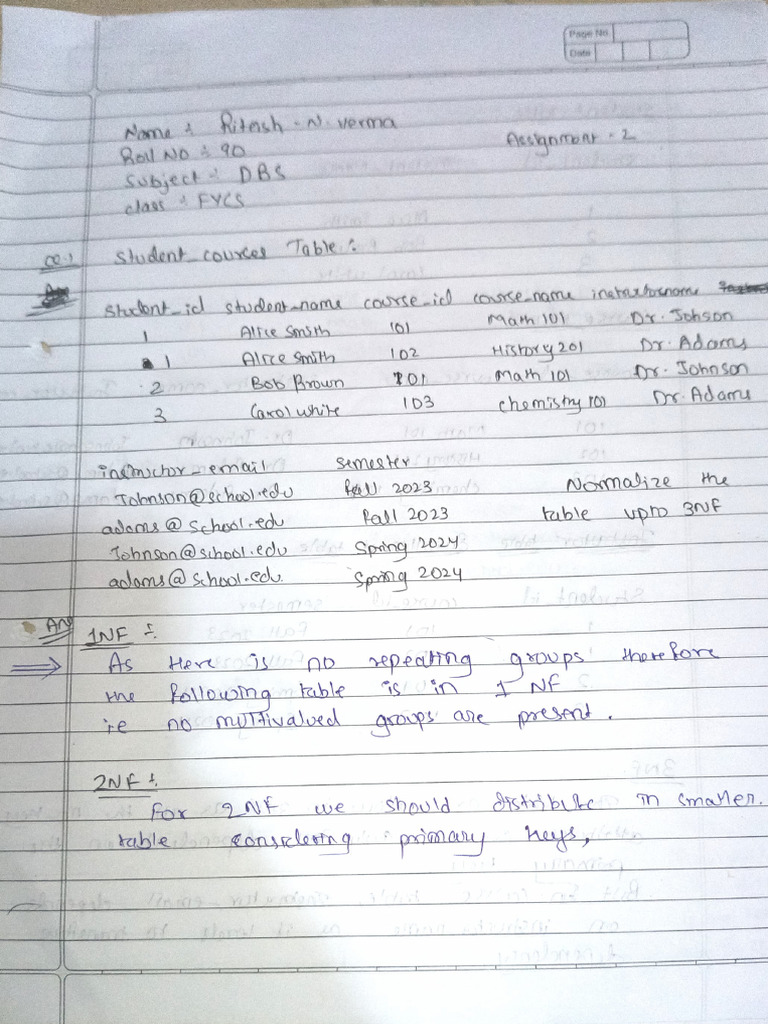 Page No.
Date
Name : Ritesh . N. verma
Assignment - 2
Roll No : 90
Subject : DBS
class : FYCS
Q.1 Student_courses Table :
student_id student_name course_id course_name instructorname
1 Alice Smith 101 Math 101 Dr. Johson
1 Alice Smith 102 History 201 Dr. Adams
2 Bob Brown 101 math 101 Dr. Johnson
3 Carol white 103 chemistry 101 Dr. Adams
instructor_email semester
Johnson@school.edu Fall 2023 Normalize the
adams@school.edu Fall 2023 table upto 3NF
Johnson@school.edu Spring 2024
adams@school.edu. Spring 2024
An
1NF :
⇒ As Here is no repeating groups therefore
the following table is in 1 NF
i.e no multivalued groups are present.
2NF :
For 2NF we should distribute in smaller.
table considering primary keys,